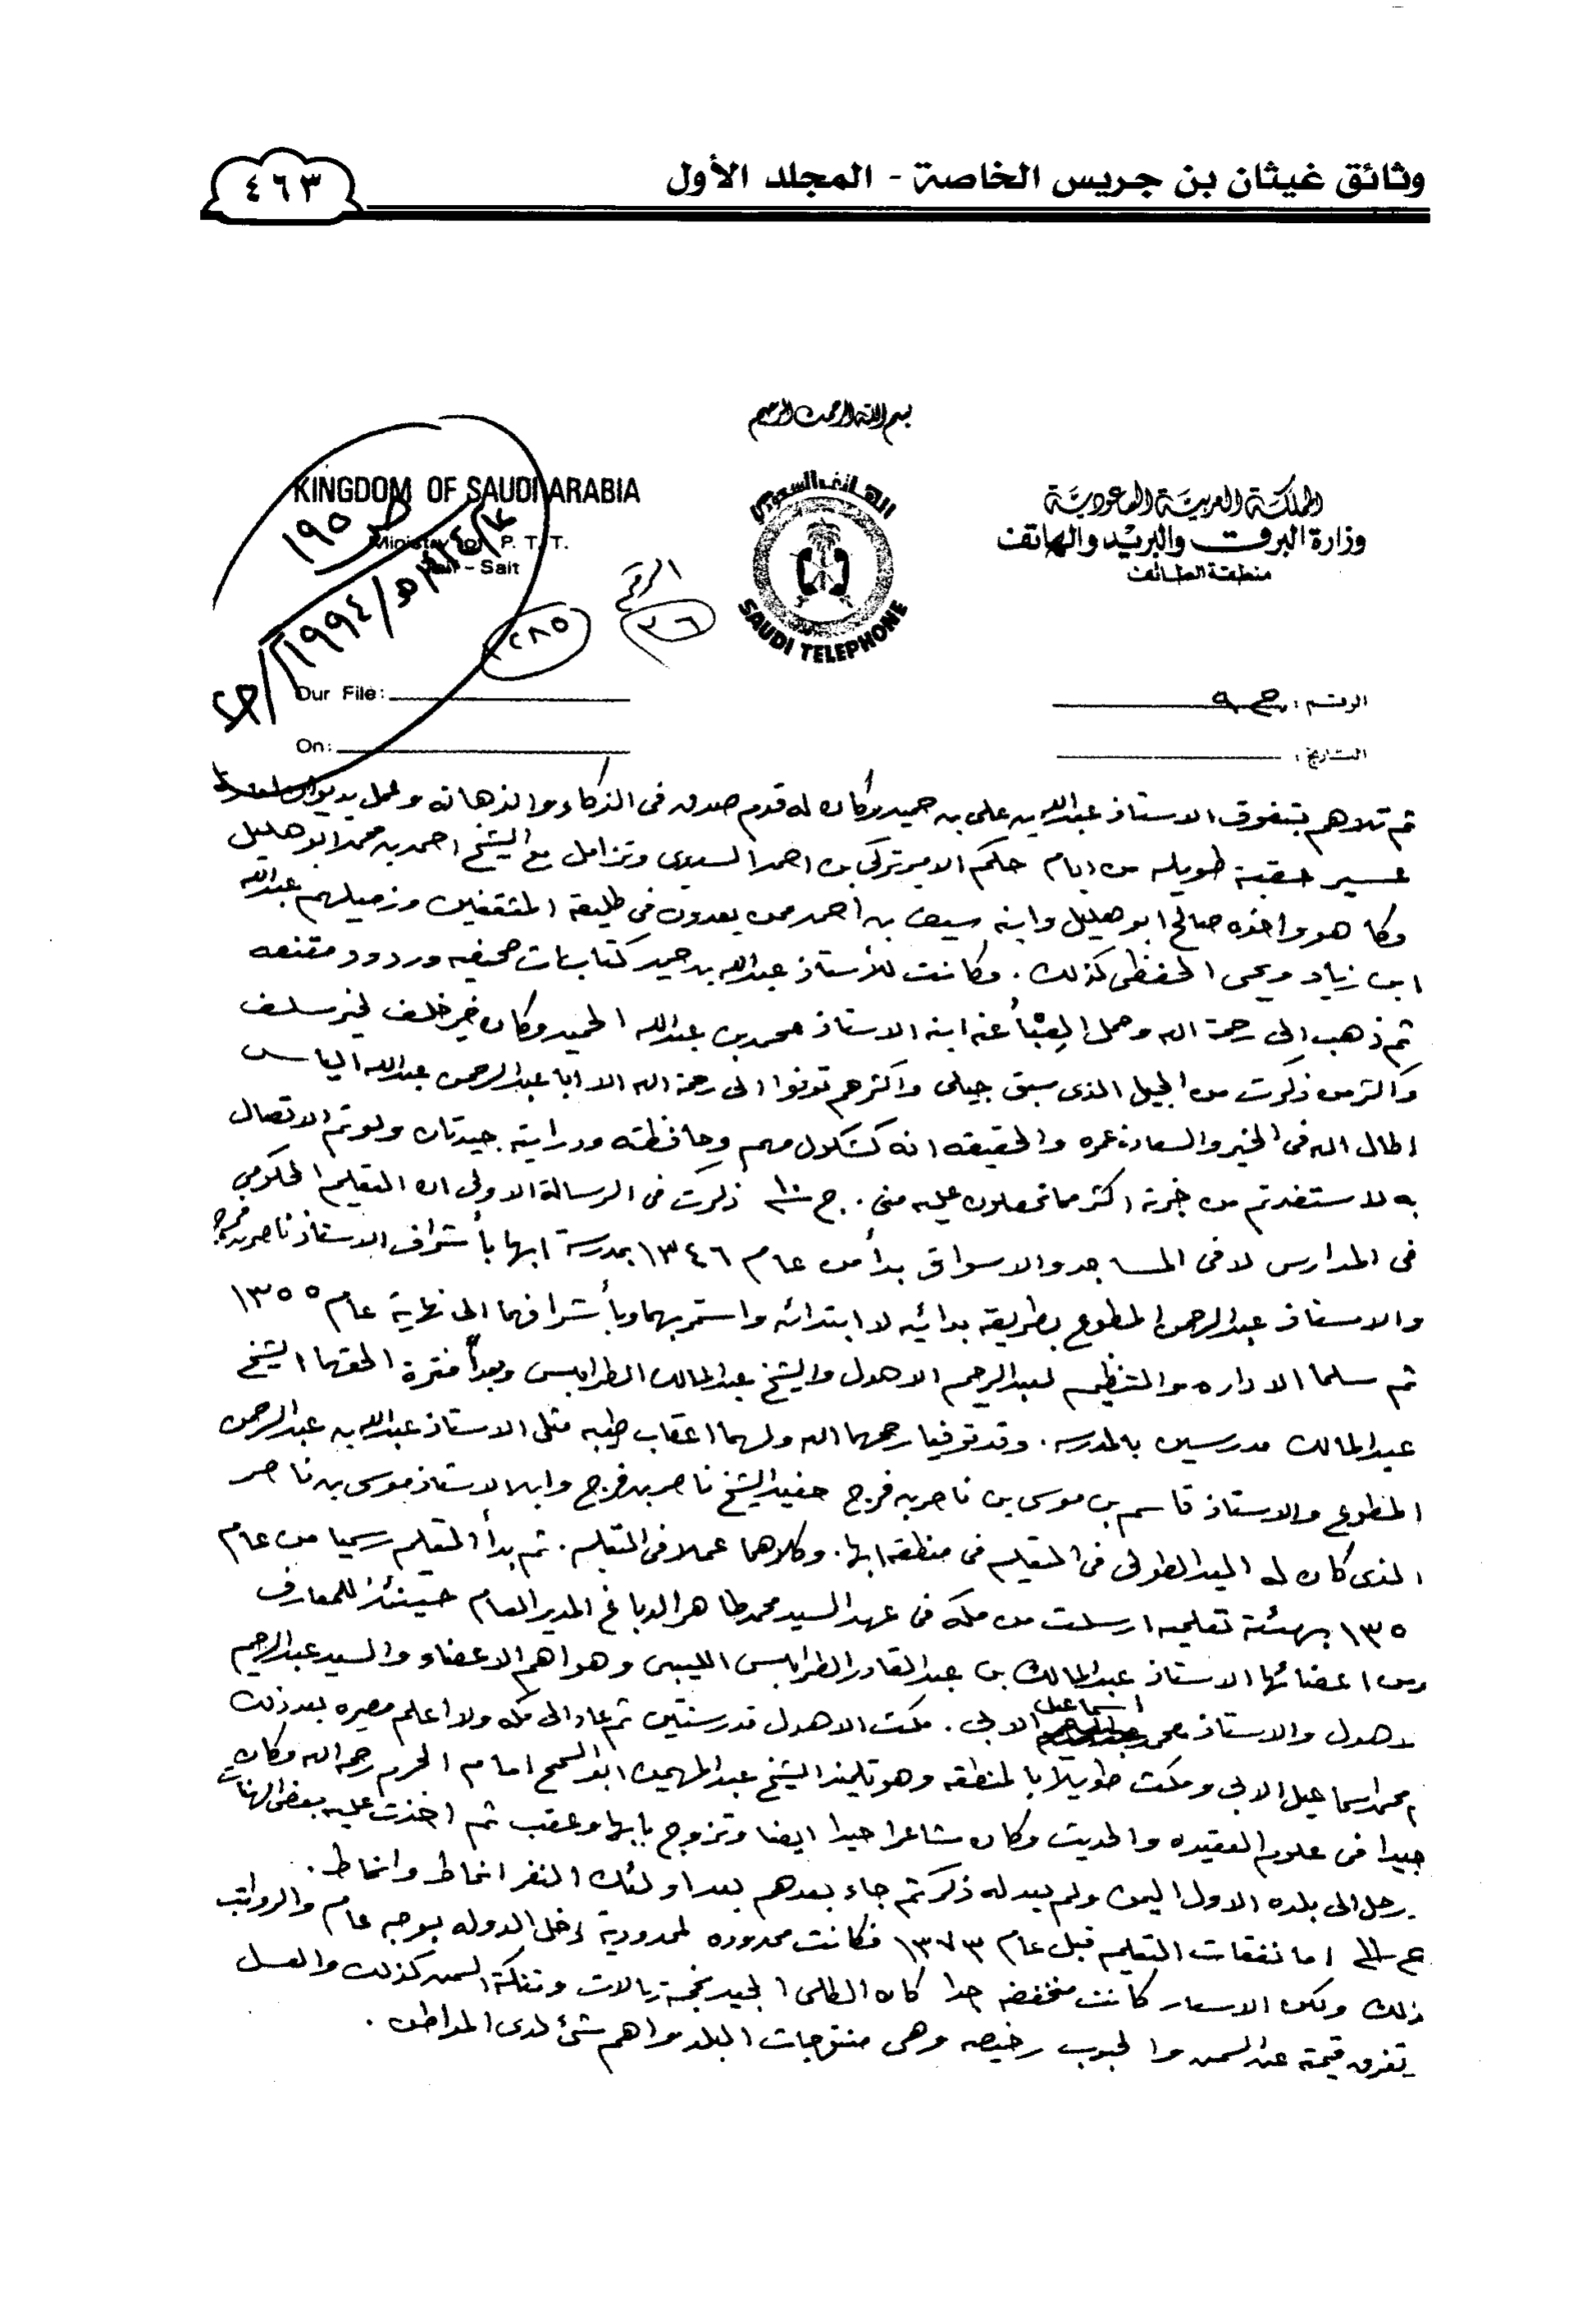 وثائق غيثان بن جريس الخاصة - المجلد الأول
٤٦٣
بسم الله الرحمن الرحيم
المملكة العربية السعودية
وزارة البرق والبريد والهاتف
منطقة الطائف
الهاتف السعودي
SAUDI TELEPHONE
KINGDOM OF SAUDI ARABIA
Ministry of P. T. T.
Sait
ص ١٩٥
الرقم
٣٦
Our File:
On:
الرقم: ج ٩
التاريخ:
ثم تلاهم بتفوق الاستاذ عبدالله بن علي بن حميد وكان له قدم صدق فى الذكاء والذهانه وعمل بديوان
عسير حقبة طويله من ايام حكم الامير تركي بن احمد السديرى وتزامل مع الشيخ احمد بن محمد ابو هليل
وكا هو واخوه صالح ابو هليل وابنه سيف بن احمد ممن يعدون في طليعة المثقفين وزميلهم عبدالله
ابن زياد ويحي الحفظى كذلك . وكانت للأستاذ عبدالله بن حميد كتابات صحفيه وردود مقنعه
ثم ذهب إلى رحمة الله وحمل العبْأ عنه ابنه الاستاذ محمد بن عبدالله الحميد وكان خير خلف لخير سلف
وأكثر من ذكرت من الجيل الذى سبق جيلى واكثرهم توفوا الى رحمة الله الا ابا عبدالرحمن عبدالله الياس
اطال الله فى الخير والسعادة عمره والحقيقه انه كشكول مهم وحافظته ودرايته جيدتان ولو تم الاتصال
به لاستفدتم من خبرته اكثر مما تحصلون عليه منى . ج ١٠ ذكرت فى الرسالة الاولى ان التعليم الحكومي
فى المدارس لا فى المساجد والاسواق بدأ من عام ١٣٤٦ بمدرسة ابها بأشراف الاستاذ ناصر بن فرج
والاستاذ عبدالرحمن المطوع بطريقه بدائيه لا ابتدائه واستمر بهما وبأشرافهما الى نهاية عام ١٣٥٥
ثم سلما الاداره والتنظيم لعبدالرحيم الاهدل والشيخ عبدالمالك الطرابلسى وبعد فترة الحقهما الشيخ
عبدالمالك مدرسين بالمدرسه . وقد توفيا رحمهما الله ولهما اعقاب طيبه مثل الاستاذ عبدالله بن عبدالرحمن
المطوع والاستاذ قاسم بن موسى بن ناصر بن فرج حفيد الشيخ ناصر بن فرج وابن الاستاذ موسى بن ناصر
الذى كان له اليد الطولى فى التعليم فى منطقة ابها . وكلاهما عملا فى التعليم . ثم بدأ التعليم رسميا من عام
١٣٥ بهيئة تعليميه ارسلت من مكه فى عهد السيد محمد طاهر الدباغ المدير العام حينئذ للمعارف
ومن اعضائها الاستاذ عبدالمالك بن عبدالقادر الطرابلسى الليبى وهو اهم الاعضاء والسيد عبدالرحيم
لاهدل والاستاذ محمد اسماعيل الابى . مكث الاهدل قدر سنتين ثم عاد الى مكه ولا اعلم مصيره بعد ذلك
محمد اسماعيل الابى ومكث طويلا بالمنطقه وهو تلميذ الشيخ عبدالمهيمن ابو السمح امام الحرم رحمه الله وكان
جيدا فى علوم العقيده والحديث وكان شاعرا جيدا ايضا وتزوج بابها وعقب ثم اخذت عليه بعض الهنات
رحل الى بلده الاول اليمن ولم يعد له ذكر ثم جاء بعدهم بعد اولئك النفر انماط وانماط .
ج ١١ اما نفقات التعليم قبل عام ١٣٧٣ فكانت محدوده لمحدودية دخل الدوله بوجه عام والرواتب
ذلك ولكن الاسعار كانت منخفضه جدا كان الطلى الجيد بخمسة ريالات وتنكة السمن كذلك والعسل
يفرق قيمة عن السمن والحبوب رخيصه وهى منتوجات البلد واهم شئ لدى المواطن .